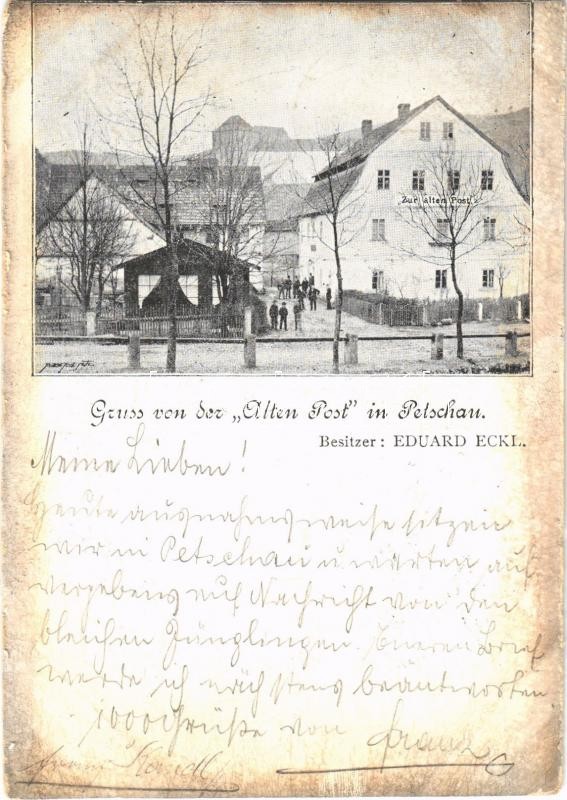 Zur alten Post
Gruss von der „Alten Post" in Petschau.
Besitzer: EDUARD ECKL.
Meine Lieben!
Heute ausnahmsweise sitzen
wir in Petschau u warten auf
vergebens auf Nachricht von den
bleichen Jünglingen. Eueren Brief
werde ich nächstens beantworten
1000 Grüße von Franz